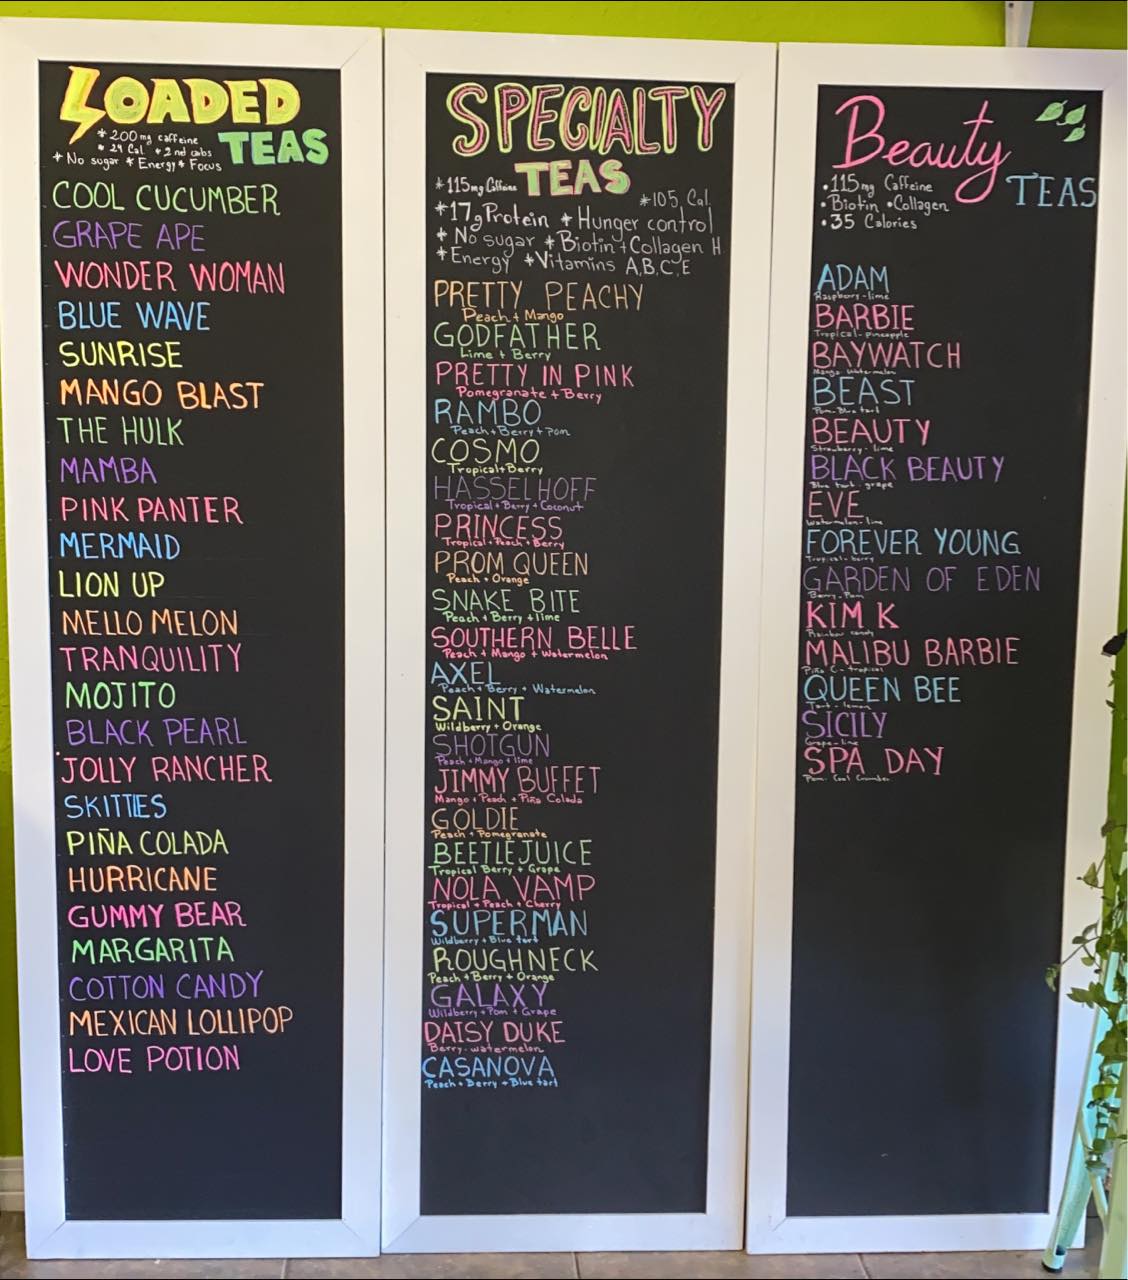 LOADED
TEAS
* 200mg caffeine
* 24 Cal * 2 net cabs
* No sugar * Energy * Focus
COOL CUCUMBER
GRAPE APE
WONDER WOMAN
BLUE WAVE
SUNRISE
MANGO BLAST
THE HULK
MAMBA
PINK PANTER
MERMAID
LION UP
MELLO MELON
TRANQUILITY
MOJITO
BLACK PEARL
JOLLY RANCHER
SKITTLES
PIÑA COLADA
HURRICANE
GUMMY BEAR
MARGARITA
COTTON CANDY
MEXICAN LOLLIPOP
LOVE POTION
SPECIALTY
TEAS
*115mg Caffeine
*105 Cal.
*17g Protein * Hunger control
* No sugar * Biotin + Collagen H
*Energy *Vitamins A,B,C,E
PRETTY PEACHY
Peach + Mango
GODFATHER
Lime + Berry
PRETTY IN PINK
Pomegranate + Berry
RAMBO
Peach + Berry + pom
COSMO
Tropical + Berry
HASSELHOFF
Tropical + Berry + Coconut
PRINCESS
Tropical + Peach + Berry
PROM QUEEN
Peach + Orange
SNAKE BITE
Peach + Berry + lime
SOUTHERN BELLE
Peach + Mango + Watermelon
AXEL
Peach + Berry + Watermelon
SAINT
Wildberry + Orange
SHOTGUN
Peach + Mango + lime
JIMMY BUFFET
Mango + Peach + Piña Colada
GOLDIE
Peach + Pomegranate
BEETLEJUICE
Tropical Berry + Grape
NOLA VAMP
Tropical + Peach + Cherry
SUPERMAN
Wildberry + Blue tart
ROUGHNECK
Peach + Berry + Orange
GALAXY
Wildberry + Pom + Grape
DAISY DUKE
Berry - watermelon
CASANOVA
Peach + Berry + Blue tart
Beauty
TEAS
•115mg Caffeine
•Biotin •Collagen
•35 Calories
ADAM
Raspberry - lime
BARBIE
Tropical - pineapple
BAYWATCH
Mango Watermelon
BEAST
Pom - Blue tart
BEAUTY
Strawberry - lime
BLACK BEAUTY
Blue tart - grape
EVE
Watermelon - lime
FOREVER YOUNG
Tropical - berry
GARDEN OF EDEN
Berry - Pom
KIM K
Rainbow candy
MALIBU BARBIE
Piña C - tropical
QUEEN BEE
Tart - lemon
SICILY
Grape - lime
SPA DAY
Pom - Cool Cucumber